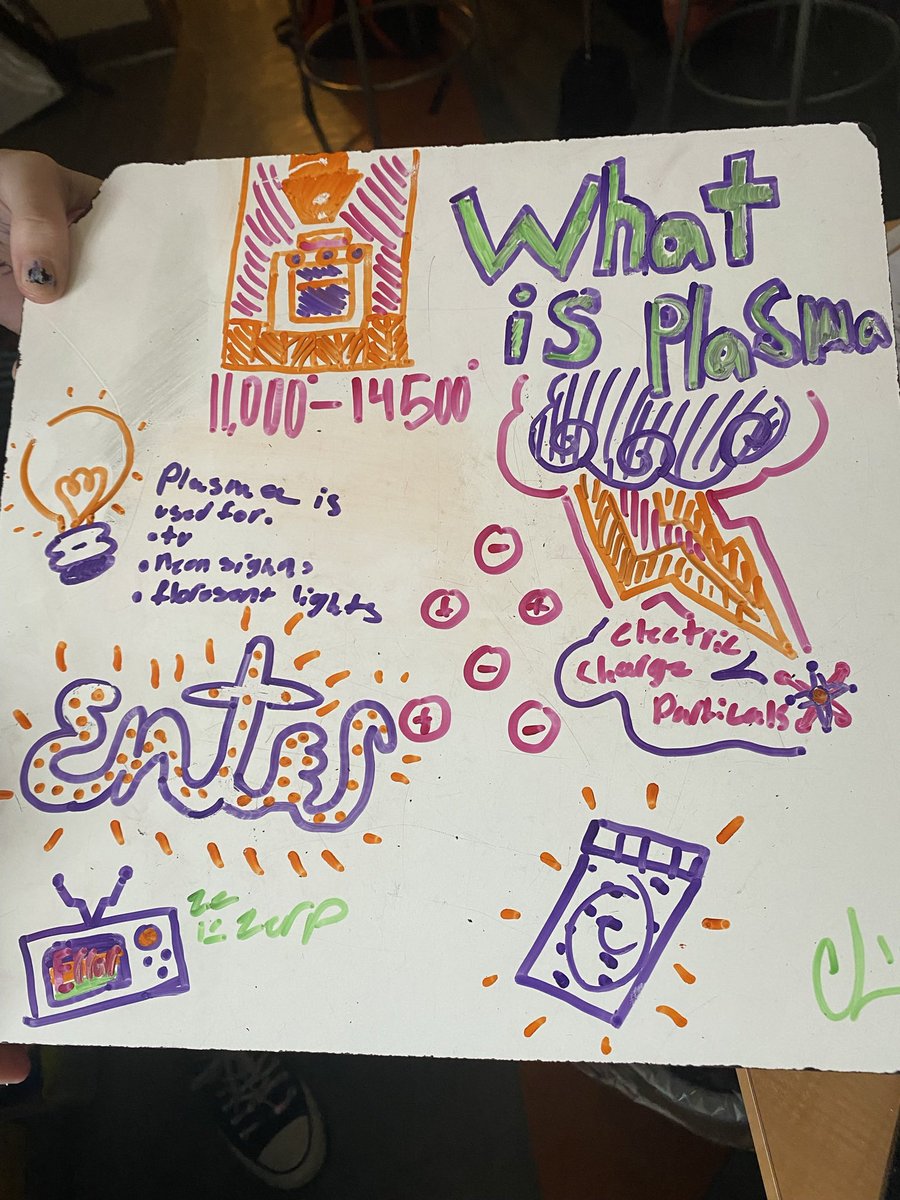 What
is Plasma
11,000°-14500°
Plasma is
used for.
• tv
• neon signs
• floresant lights
electric
charge
Particals
Enter
Error